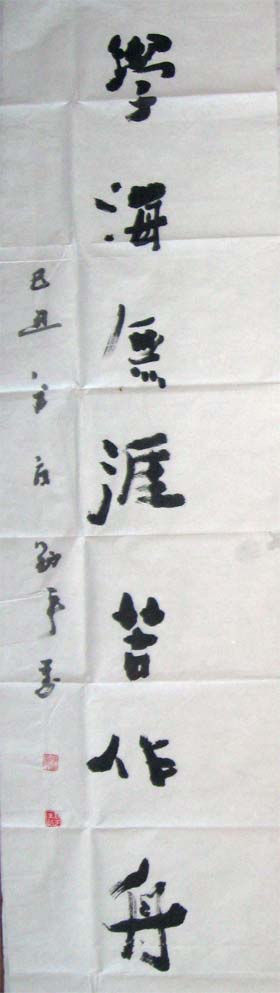 學海無涯苦作舟
己丑